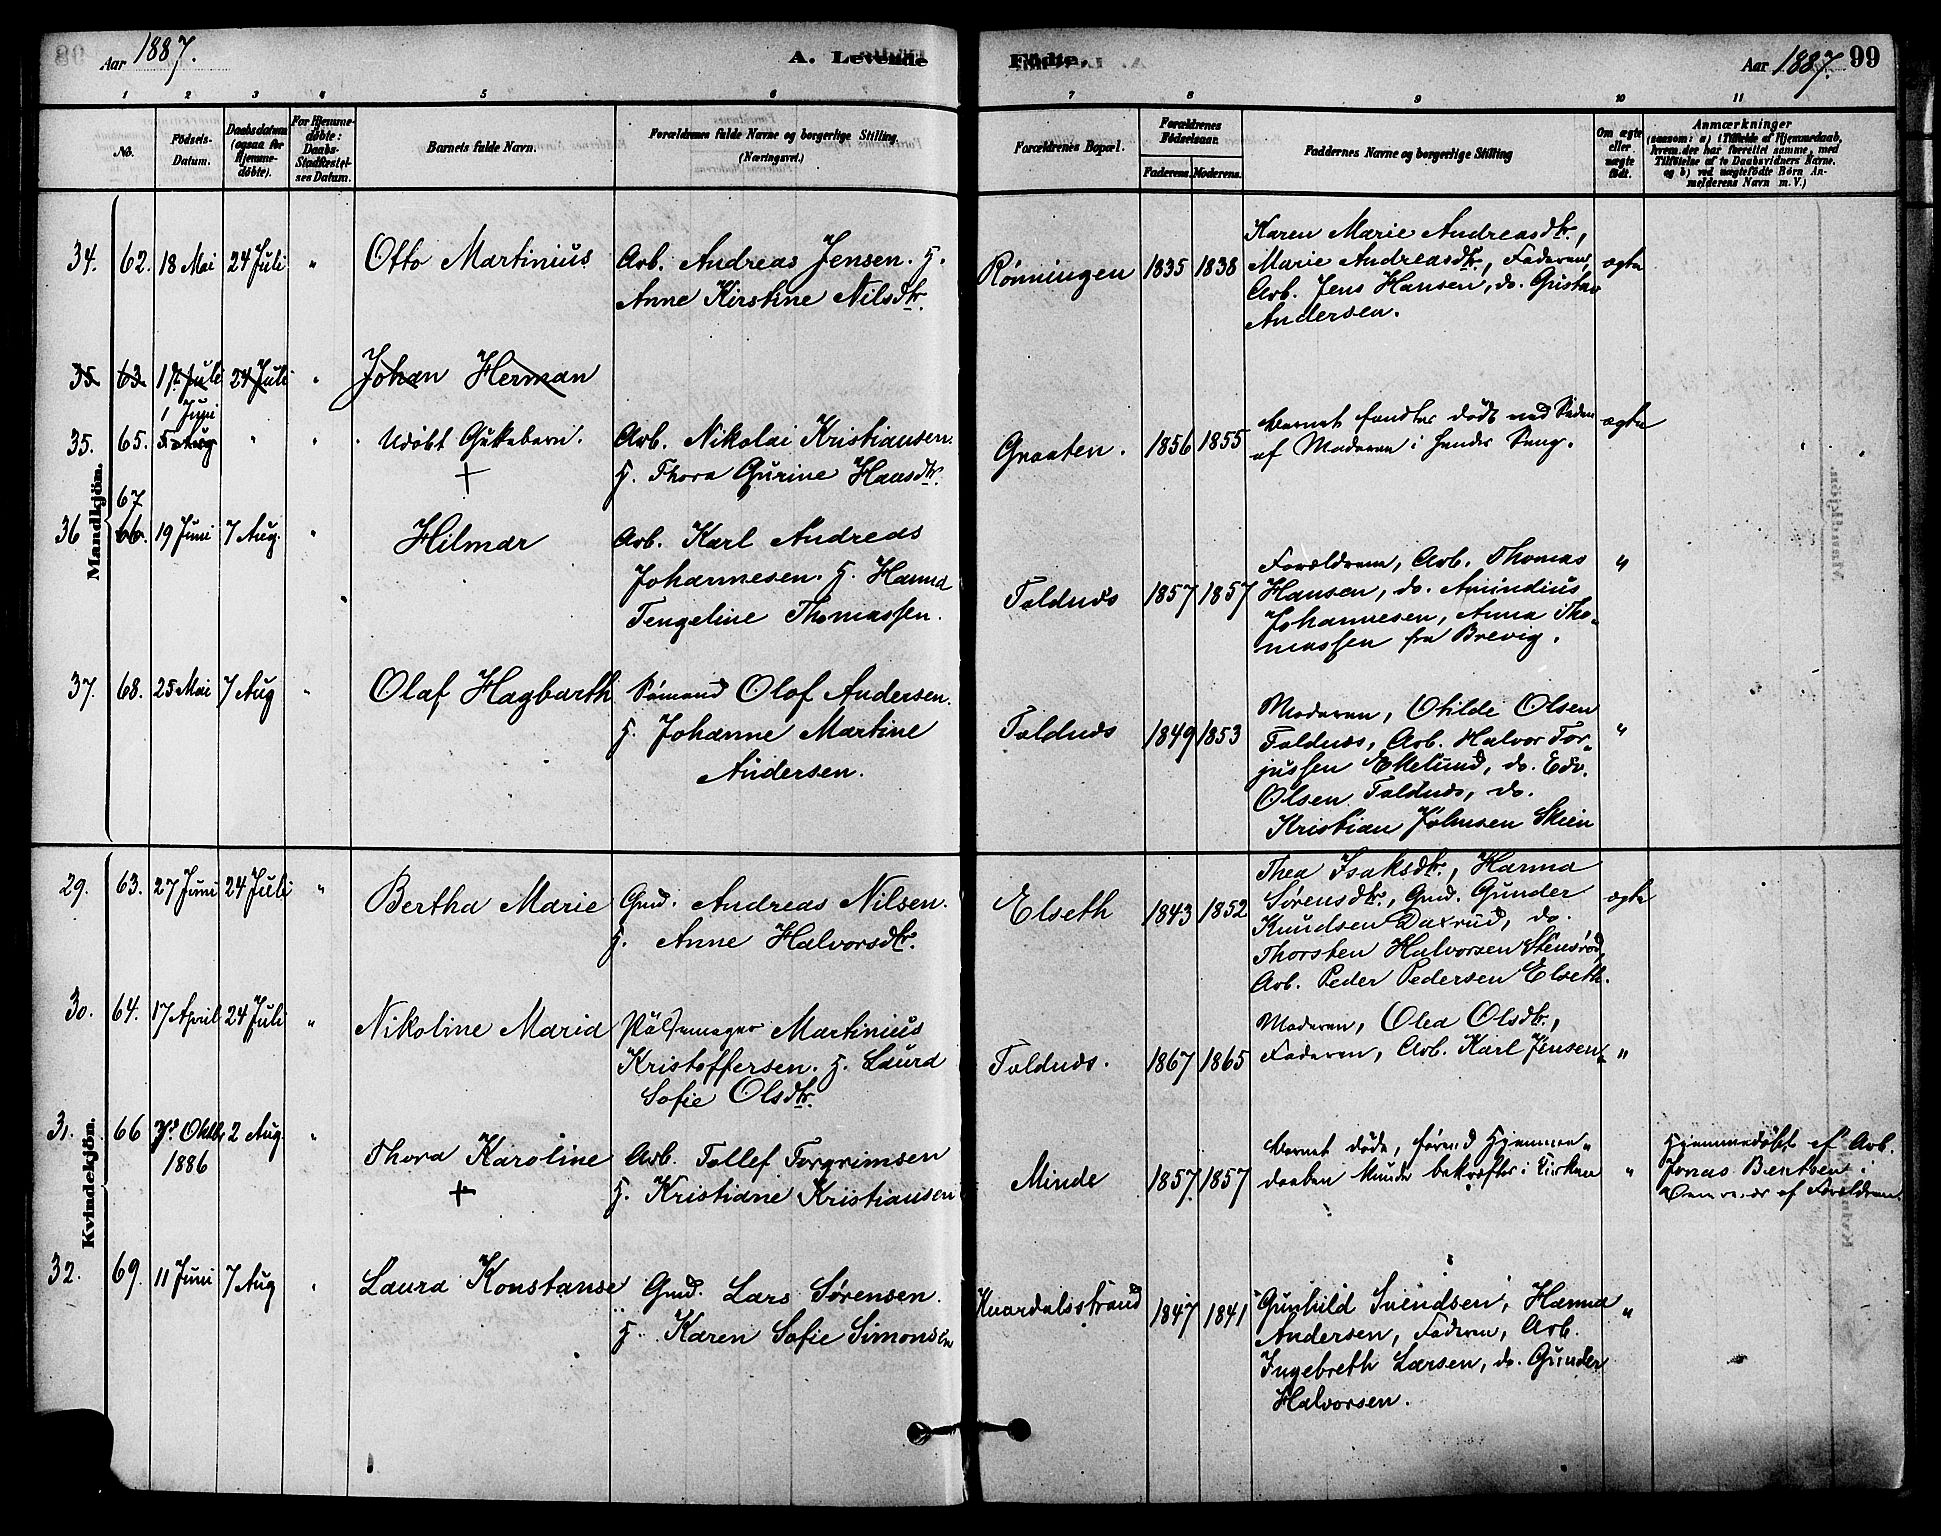 Aar 1887.
A. Levende
Fødte.
Aar 1887.
99
1 2 3 4 5 6 7 8 9 10 11
No.
Fødsels-
Datum.
Daabsdatum
(ogsaa for
Hjemme-
døbte).
For Hjemme-
døbte:
Daabs-
Stadfæstel-
ses Datum.
Barnets fulde Navn.
Forældrenes fulde Navne og borgerlige Stilling.
(Næringsvei.)
Forældrenes Bopæl.
Forældrenes
Fødselsaar.
Faderens. Moderens.
Faddernes Navne og borgerlige Stilling
Om ægte
eller
uægte
født.
Anmærkninger
(saasom: a) i Tilfælde af Hjemmedaab,
hvem der har forrettet samme, med
Tilføielse af to Daabsvidners Navne.
og b) ved uægtefødte Børn An-
melderens Navn m. V.)
Mandkjön.
34. 62. 18 Mai 24 Juli " Otto Martinius
Arb. Andreas Jensen. H.
Anne Kirstine Nilsdtr.
Rønningen 1835 1838
Karen Marie Andreasdtr,
Marie Andreasdtr, Faderen,
Arb. Jens Hansen, do. Gustav
Andersen.
ægte
35 63 17 Juli 24 Juli " Johan Herman
35. 65. 1 Juni 5 Aug " " Udøbt Gutebarn. +
Arb. Nikolai Kristiansen.
H. Thora Gurine Hansdtr.
Graaten. 1856 1855
Barnet fandtes dødt ved Siden
af Moderen i hendes Seng.
ægte
36 67 66. 19 Juni 7 Aug. " Hilmar
Arb. Karl Andreas
Johannesen. H. Hanna
Tengeline Thomassen.
Foldnæs 1857 1857
Forældrene, Arb. Thomas
Hansen, do. Amindius
Johannesen, Anna Tho-
massen fra Brevig.
"
37. 68. 25 Mai 7 Aug " Olaf Hagbarth
Sømand Olof Andersen.
H. Johanne Martine
Andersen.
Foldnæs 1849 1853
Moderen, Otilde Olsen
Foldnæs, Arb. Halvor Tor-
jussen Ekelund, do. Edv.
Olsen Foldnæs, do.
Kristian Johnsen Skien
"
Kvindekjön.
29. 63. 27 Juni 24 Juli " Bertha Marie
Gmd. Andreas Nilsen.
H. Anne Halvorsdtr.
Elseth 1843 1852
Thea Isaksdtr., Hanna
Sørensdtr., Gmd. Gunder
Knudsen Daxrud, do.
Thorsten Halvorsen Stensrød,
Arb. Peder Pedersen Elseth.
ægte
30. 64. 17 April 24 Juli " Nikoline Maria
Pølsemager Martinius
Kristoffersen. H. Laura
Sofie Olsdtr.
Foldnæs. 1867 1865
Moderen, Olea Olsdtr.,
Faderen, Arb. Karl Jensen
"
31. 66 Oktb. 1886 2 Aug. " Thora Karoline +
Arb. Tollef Torgrimsen
H. Kristiane Kristiansen
Minde 1857 1857
Barnet døde, førend Hjemme-
daaben kunde bekræftes i Kirken
"
Hjemmedøbt af Arb.
Jonas Bentsen i
Nærvær af Forældrene.
32. 69. 11 Juni 7 Aug " Laura Konstanse
Gmd. Lars Sørensen.
H. Karen Sofie Simonsen
Knardalsstrand 1847 1841
Gunhild Svendsen, Hanna
Andersen, Faderen, Arb.
Ingebreth Larsen, do. Gunder
Halvorsen.
"